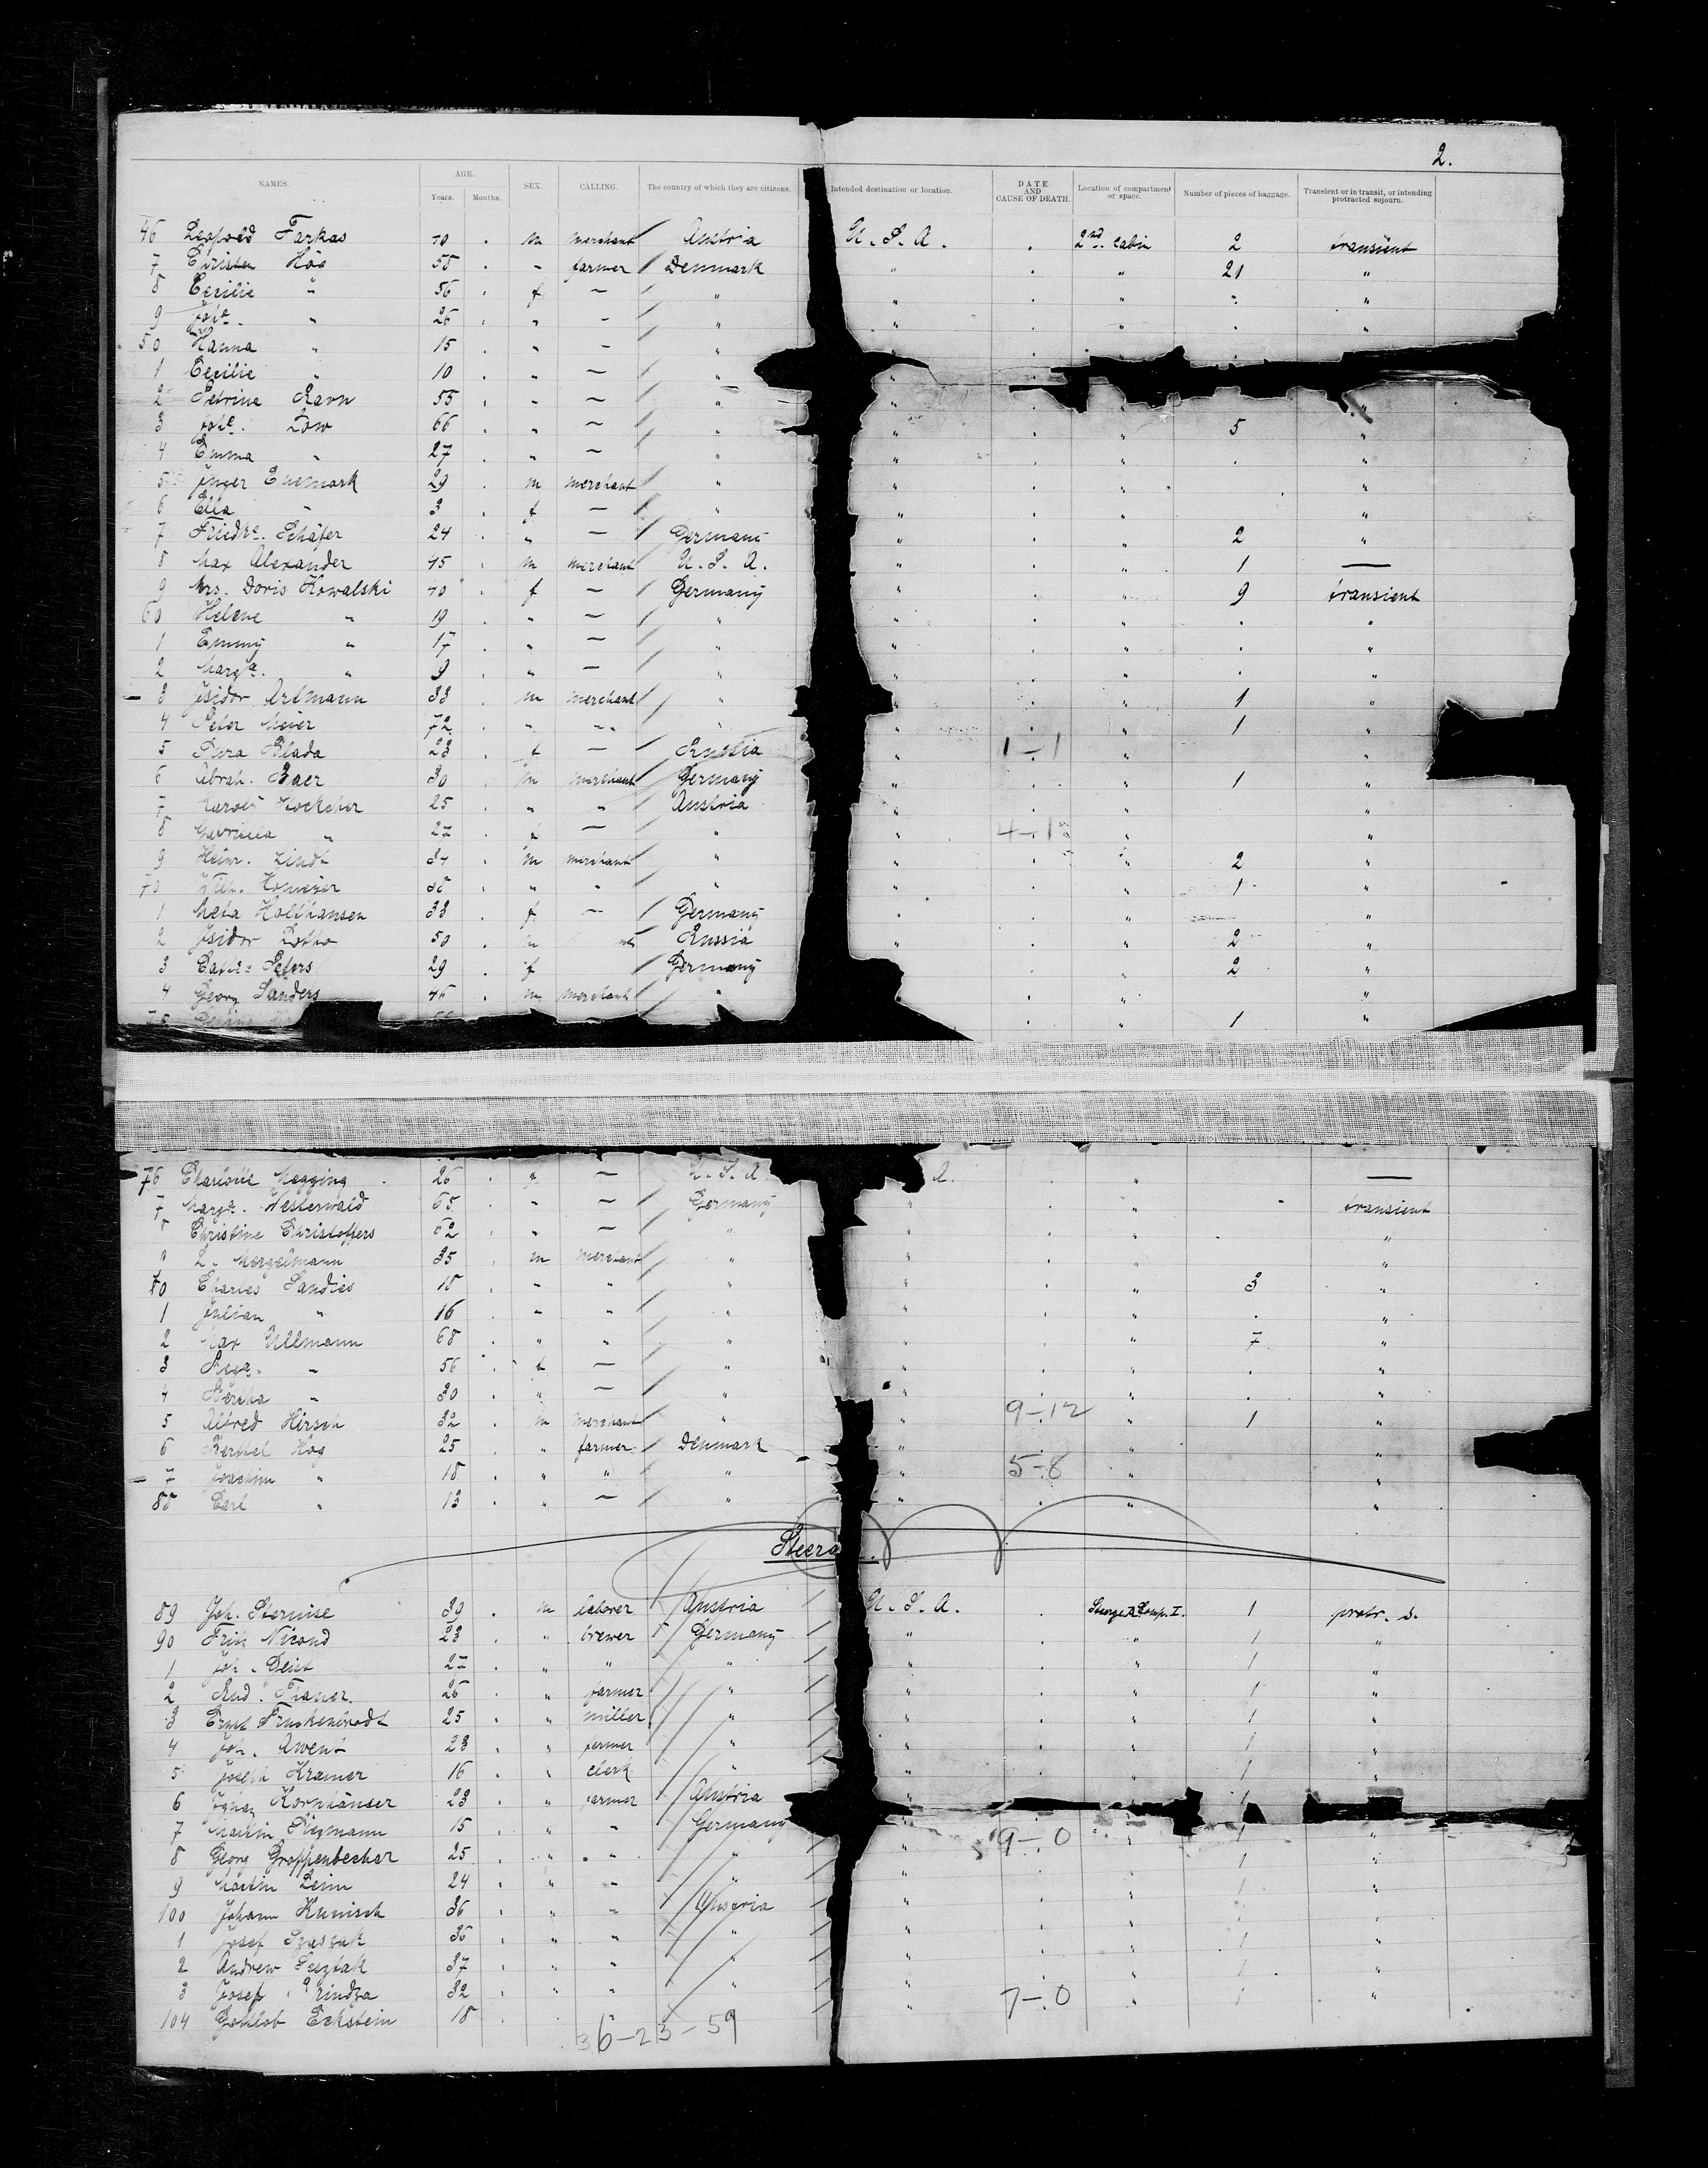 2.
NAMES. AGE. Years. Months. SEX. CALLING. The country of which they are citizens. Intended destination or location. DATE AND CAUSE OF DEATH. Location of compartment or space. Number of pieces of baggage. Transient or in transit, or intending protracted sojourn.
46 Leopold Farkas 40 . m merchant Austria U. S. A. . 2nd cabin 2 transient
7 Christen Hög 58 . " farmer Denmark " . " 21 "
8 Cecilie " 56 . f — " " . " " "
9 Johe. " 26 . " — " " . " . "
50 Hanna " 15 . " — " " .
1 Cecilie " 10 . " — " "
2 Petrina Ravn 55 . " — " " . " "
3 Johe. Low 66 . " — " " . " 5 "
4 Emma " 27 . " — " " . " . "
5 Inger Enemark 29 m merchant " " . " . "
6 Ella " 3 . f — " " . " "
7 Friedke. Schäfer 24 . " — Germany " . " 2 "
8 Max Alexander 45 . m merchant U. S. A. " . " 1 —
9 Mrs. Doris Kowalski 40 . f — Germany " . " 9 transient
60 Helene " 19 . " — " " . " . "
1 Emmy " 17 . " — " " . " . "
2 Marga. " 9 . " — " " . " . "
3 Isidor Artmann 33 . m merchant " " . " 1 "
4 Peter Meier 72 . " " " " . " 1 "
5 Blada 23 . f — Russia " 1-1 " "
6 Abrah. Baer 30 . m merchant Germany " . " 1 "
7 25 . " " Austria " . " "
8 Gabriella " 27 . f — " " 4-1 " "
9 Heinr. Lindt 34 . m merchant " " . " 2 "
70 38 . " " " " . " 1 "
1 Meta Holthausen 33 . f — Germany " . " "
2 Isidor 50 . m Russia " . " 2 "
3 Peters 29 . f Germany . " 2 "
4 Georg Sanders 46 . m merchant " . " "
75 . " 1 "
76 Charlotte 26 . f — U. S. A. A. . " —
7 Marga. Westerwald 65 . " — Germany " . " . transient
8 Christina Christoffers 62 . " — " " . " . "
9 L. Mergelmann 35 . m merchant " " . " "
80 Charles Sandies 18 . " " " " . " 3 "
1 Julian " 16 . " " " " . " . "
2 Max Ullmann 68 . " " " " . " 7 "
3 " 56 . f — " " . " . "
4 Bertha " 30 . " — " " . " . "
5 Alfred Hirsch 32 . m merchant " " 9-12 " 1 "
6 Berthel Hög 25 . " farmer Denmark " . " "
7 Joachim " 18 . " " " " 5-8 " "
88 Carl " 13 . " — " " . " "
Steera
89 Joh. Sternise 39 . m laborer Austria U. S. A. . Steerage Comp. I. 1 protr. s.
90 Fritz Nicond 23 . " brewer Germany " . " 1 "
1 Joh. 27 . " " " " . " 1 "
2 Rud. 26 . " farmer " " . " 1 "
3 Ernst 25 . " miller " " . " 1 "
4 Joh. Awent 23 . " farmer " " . " 1 "
5 Joseph Kramer 16 . " clerk " " . " 1 "
6 Ignaz Kornhäuser 23 . " farmer Austria " 1
7 Martin Stegmann 15 . " " Germany " 9-0 " 1 "
8 Georg Groppenbecher 25 . " " " " . " 1 "
9 Martin 24 . " " " " . " 1 "
100 Johann Kunisch 36 . " " Austria " . " 1 "
1 Josef 36 . " " " " . " 1 "
2 Andrew 37 . " " " " . " 1 "
3 Josef 32 . " " " " 7-0 " 1 "
104 Gottlob Eckstein 18 .
36-23-59